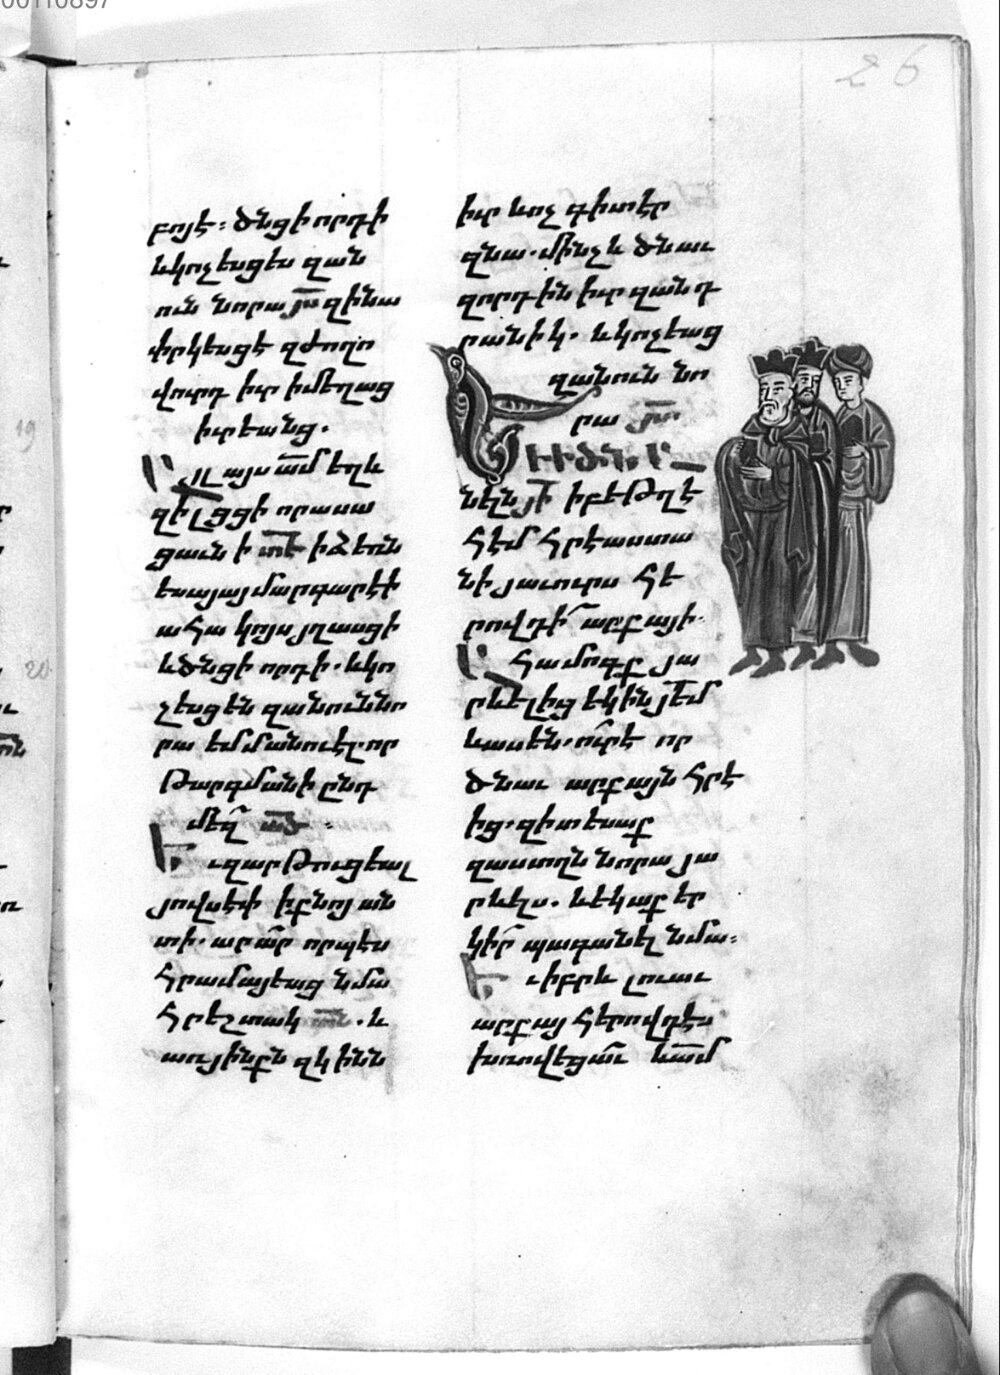 26
բոյէ։ ծնցի որդի
և կոչեսցես զան
ուն նորա յս̅ զի նա
փրկեսցէ զժողո
վուրդ իւր ի մեղաց
իւրեանց.
Այլ այս ամ̅ եղև
զի լցցի որ ասա
ցաւն ի տէ̅ ի ձեռն
եսայայ մարգարէի
ահա կոյս յղասցի
և ծնցի որդի. և կո
չեսցեն զանուն նո
րա եմմանուէլ. որ
թարգմանի ընդ
մեզ ա̅ծ։
Եւ զարթուցեալ
յովսէփ ի քնոյ ան
տի. արար որպէս
հրամայեաց նմա
հրեշտակ տն̅. և
առ յինքն զկինն
իւր և ոչ գիտէր
զնա. մինչև ծնաւ
զորդին իւր զանդ
րանիկ. և կոչեաց
զանուն նո
րա յս̅
ԵՒ Ի ԾՆԱ
նելն յի̅ ի բեթղէ
հէմ հրէաստա
նի յաւուրս հե
րովդի արքայի.
Ահա մոգք յա
րևելից եկին յե̅մ
և ասեն. ուր է որ
ծնաւ արքայն հրէ
ից. զի տեսաք
զաստղն նորա յա
րևելս. և եկաք եր
կիր պագանել նմա։
Եւ իբրև լուաւ
արքայ հերովդէս
խռովեցաւ և ամ̅